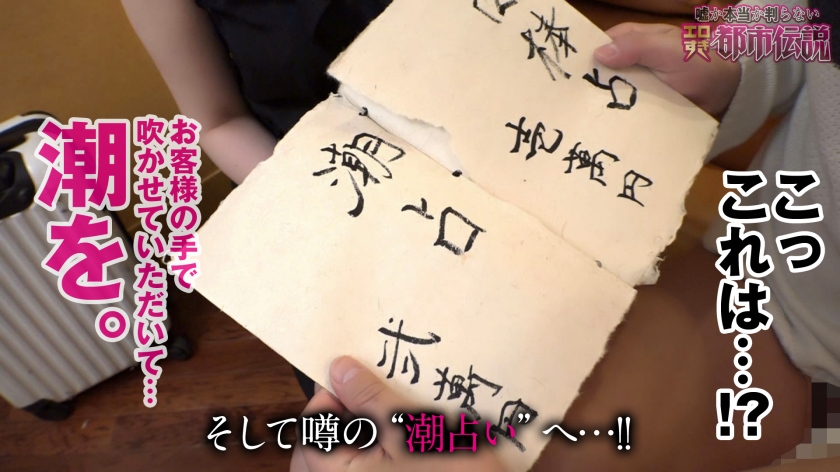 嘘か本当か判らない
エロすぎ都市伝説
棒占
壱萬円
潮占
弐萬円
お客様の手で
吹かせていただいて…
潮を。
こっ
これは…!?
そして噂の“潮占い”へ…!!